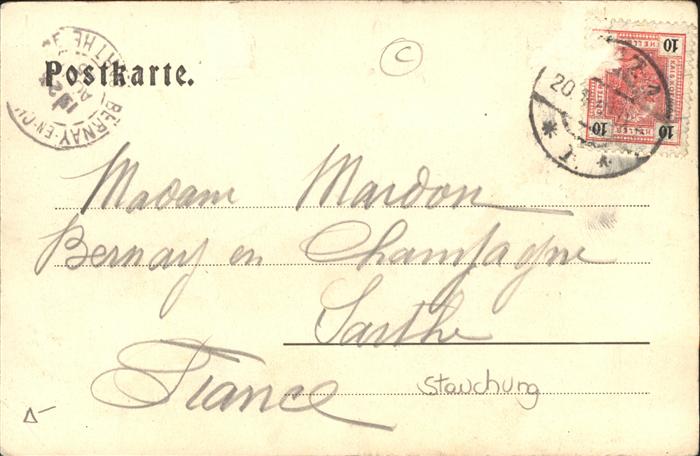 Postkarte.
Madame Mardon
Bernay en Champagne
Sarthe
France
Stauchung
C
10
10
10
HELLER
BERNAY-EN-CH
20